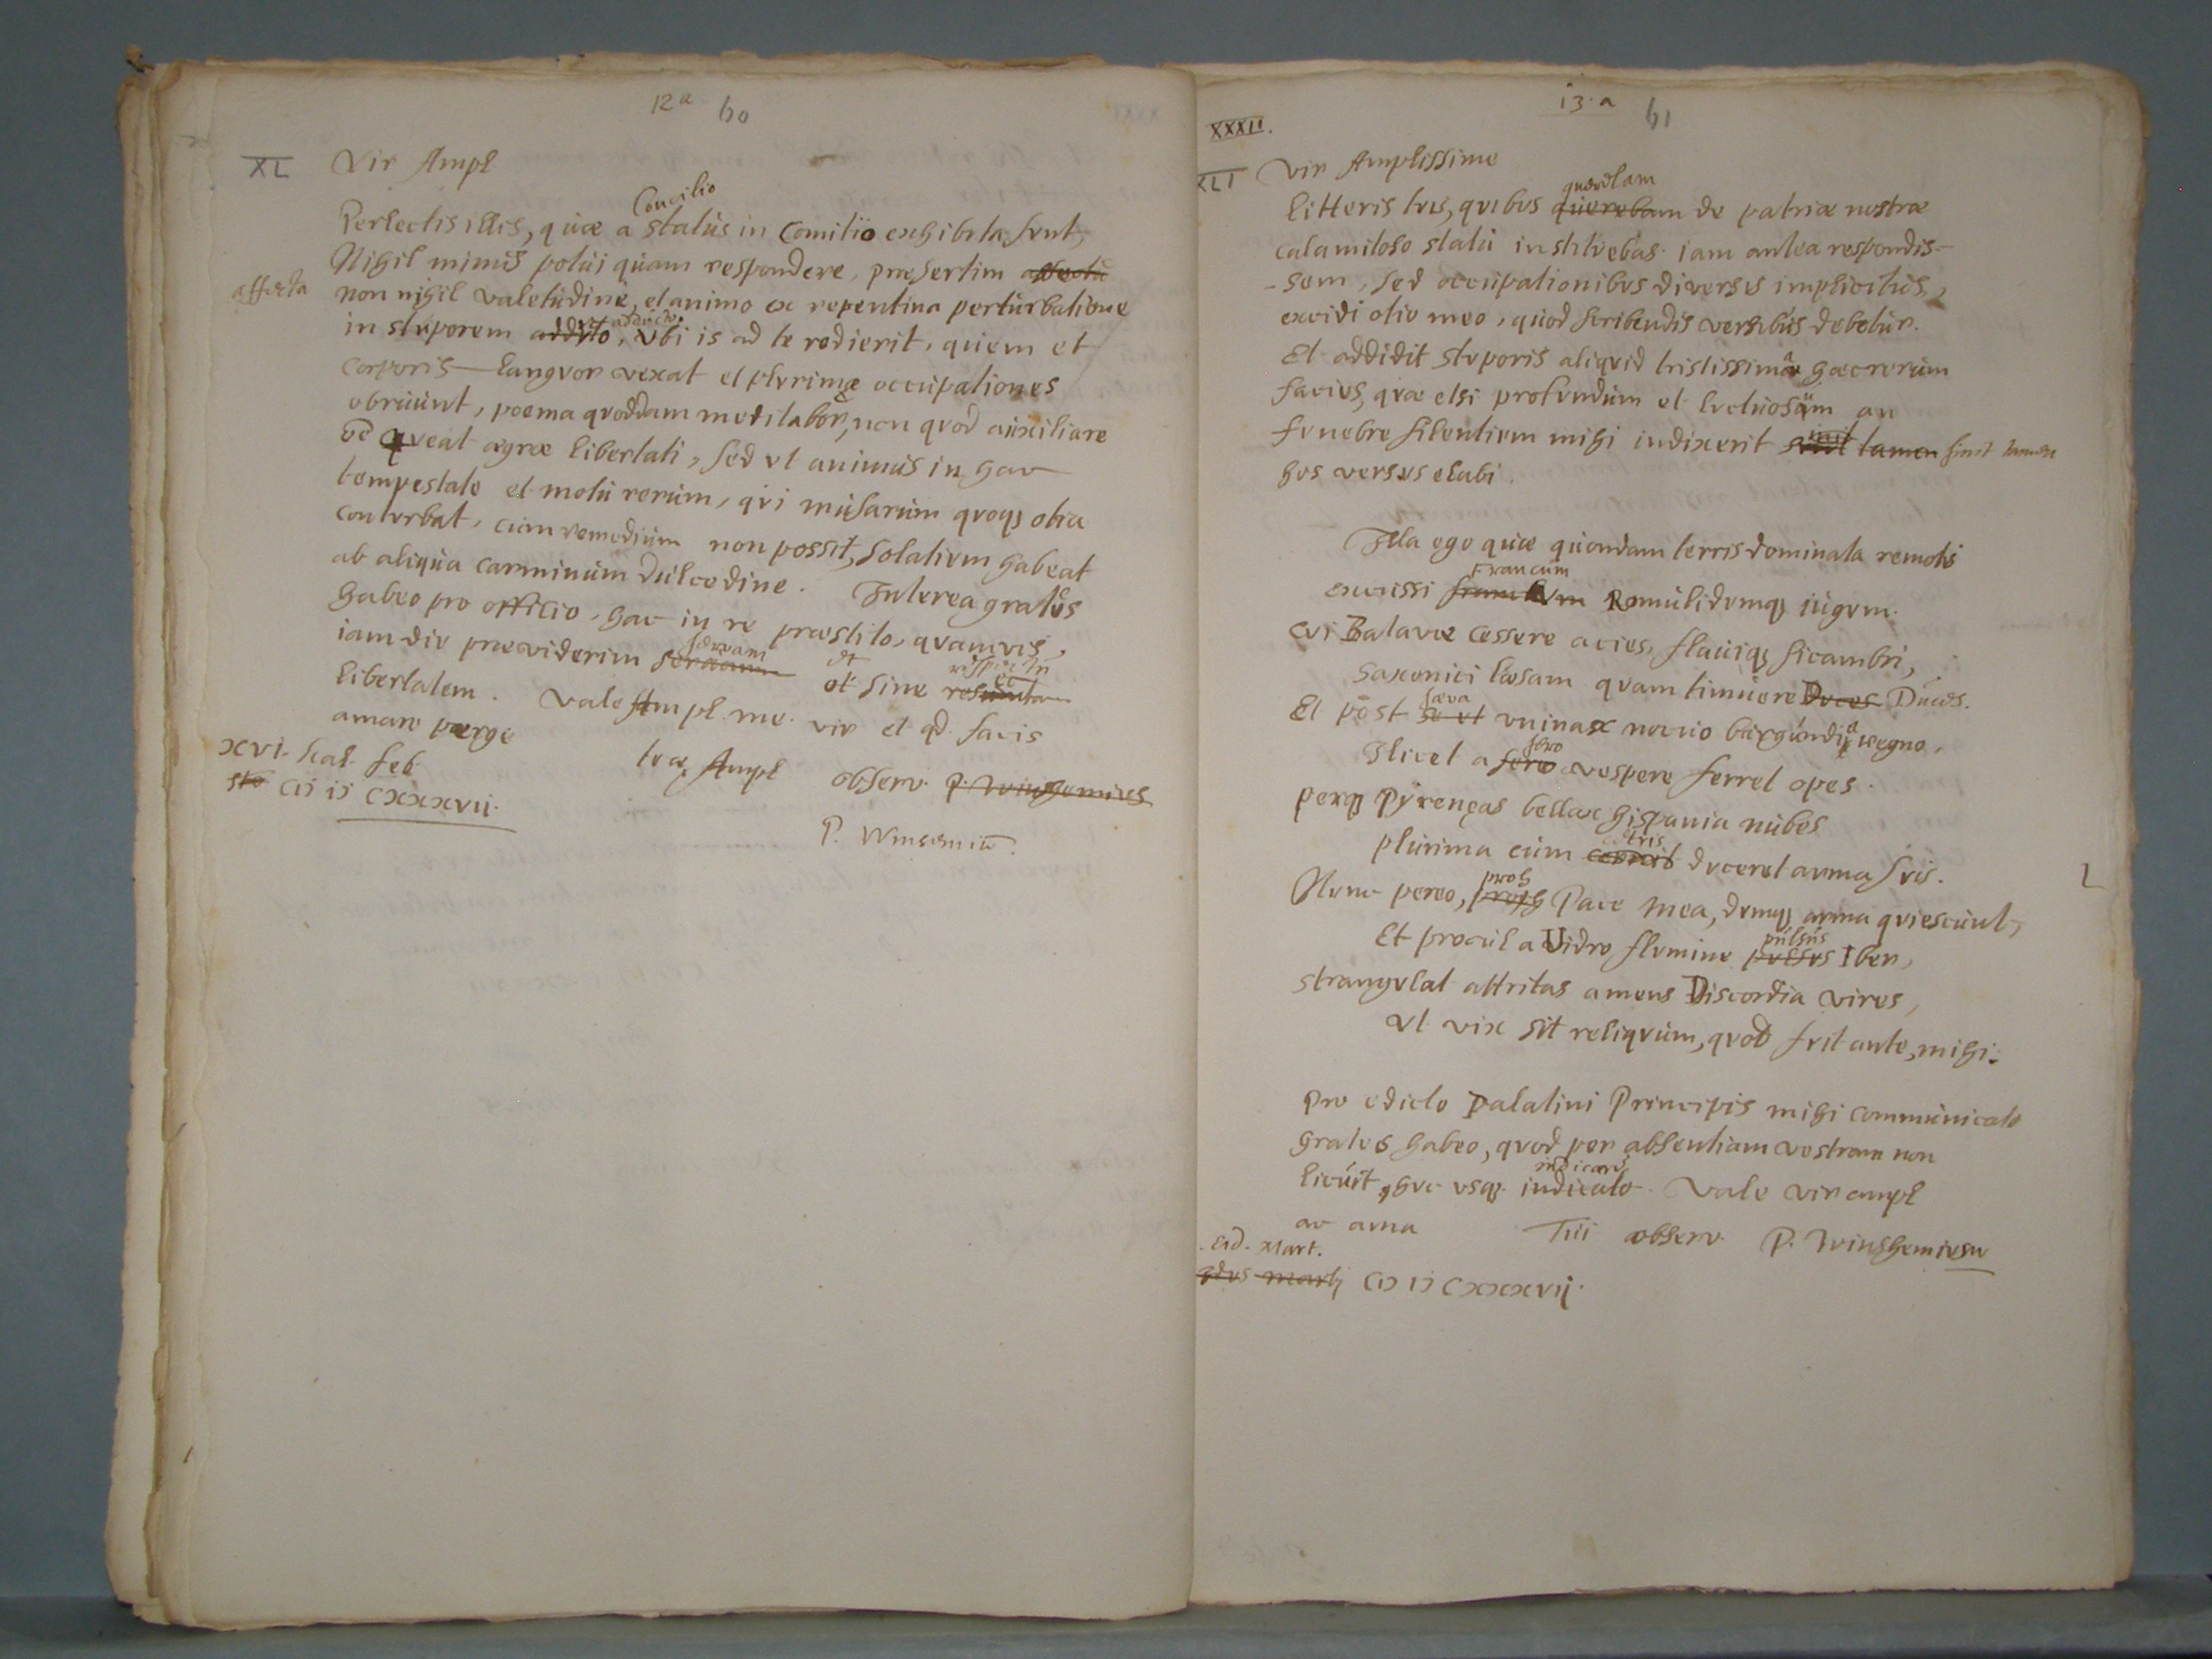 12 a 60
XL Vir Ampl
Concilio
Perlectis illis, quæ a statûs in Comitio exhibita sunt,
Nihil minus potui quam respondere, præsertim affecta
affecta non nihil valetudine, et animo ex repentina perturbatione
adducto
in stuporem addito, ubi is ad te redierit, quem et
corporis languor vexat et plurimæ occupationes
obruunt, poema quoddam meditabor, non quod auxiliare
queat ægræ libertati, sed ut animus in hac
tempestate et motu rerum, qui musarum quoqȝ otia
conturbat, cum remedium non possit, solatium habeat
ab aliqua carminum dulcedine. Interea grates
habeo pro officio, hac in re præstito, quamvis
iam diu præviderim et sine
libertatem. Vale Ampl. me. vir et qd facis
amare perge
tuæ Ampl observ. P. Winshemius
xvi. kal. feb
cıɔ iɔ cxxxvii.
P. Winsemiu.
13. a 61
XXXII.
XLI Vir Amplissime
querelam
litteris tuis, quibus querebam de patriæ nostræ
calamitoso statu instituebas iam antea respondis-
-sem, sed occupationibus diversis implicitus,
excidi otio meo, quod scribendis versibus debetur.
Et addidit stuporis aliquid tristissima hæc rerum
facies, quæ etsi profundum et luctuosum ac
funebre silentium mihi indixerit sinit tamen sinit tamen
hos versus elabi.
Illa ego quæ quondam terris dominata remotis
Francûm
excussi francûm Romulidumqȝ iugum.
cui Batavæ cessere acies, flaviqȝ sicambri,
saxonici læsam quam timuere Duces Duces.
sæva
Et post minax novio burgundia regno,
sero
Ilicet a sero vespere ferret opes.
perqȝ pyrenęas bellax hispania nubes
cetris
plurima cum cetris duceret arma suis.
proh
Nunc pereo, proh Pace mea, dumqȝ arma quiescunt,
pulsus
Et procul a Vidro flumine pulsus Iber,
strangulat attritas amens Discordia vires,
ut vix sit reliquum, quod fuit ante, mihi.
pro edicto Palatini Principis mihi communicato
grates habeo, quod per absentiam vestram non
indicare
licuit, huc usqȝ indicato. Vale vir ampl
ac ama Tui observ. P. Winshemiusn
eid. Mart.
Idus Martij cıɔ iɔ cxxxvij.